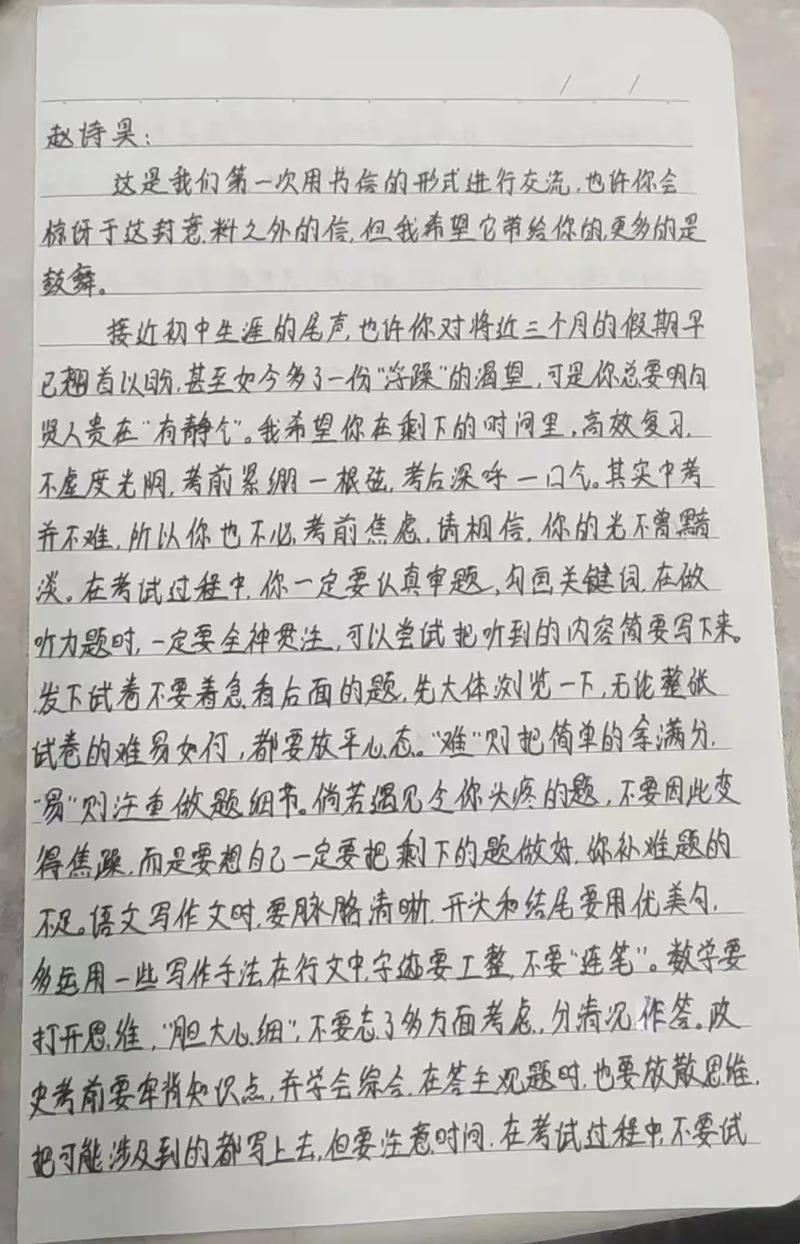 / /
赵诗昊：
这是我们第一次用书信的形式进行交流,也许你会
惊讶于这封意料之外的信,但我希望它带给你的,更多的是
鼓舞。
接近初中生涯的尾声,也许你对将近三个月的假期早
已翘首以盼,甚至如今多了一份“浮躁”的渴望,可是你总要明白
贤人贵在“有静气”。我希望你在剩下的时间里,高效复习,
不虚度光阴,考前紧绷一根弦,考后深呼一口气。其实中考
并不难,所以你也不必考前焦虑,请相信,你的光不曾黯
淡。在考试过程中,你一定要认真审题,勾画关键词,在做
听力题时,一定要全神贯注,可以尝试把听到的内容简要写下来。
发下试卷不要着急看后面的题,先大体浏览一下,无论整张
试卷的难易如何,都要放平心态。“难”则把简单的拿满分,
“易”则注重做题细节。倘若遇见令你头疼的题,不要因此变
得焦躁,而是要想自己一定要把剩下的题做好,弥补难题的
不足。语文写作文时,要脉胳清晰,开头和结尾要用优美句,
多运用一些写作手法在行文中,字迹要工整,不要“连笔”。数学要
打开思维,“胆大心细”,不要忘了多方面考虑,分情况作答。政
史考前要牢背知识点,并学会综合,在答主观题时,也要放散思维,
把可能涉及到的都写上去,但要注意时间.在考试过程中,不要试